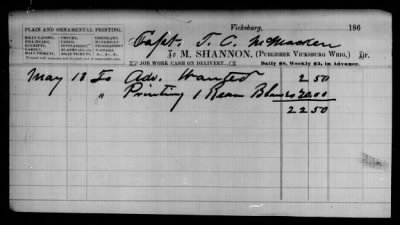 PLAIN AND ORNAMENTAL PRINTING.
Vicksburg, 186
Capt. T. C. McMacken
To M. SHANNON, (PUBLISHER VICKSBURG WHIG,) Dr.
JOB WORK CASH ON DELIVERY. Daily $8, Weekly $3, in Advance.
May 18 To Adv. Wanted 2 50
" Printing 1 Ream Blanks 20.00
22 50